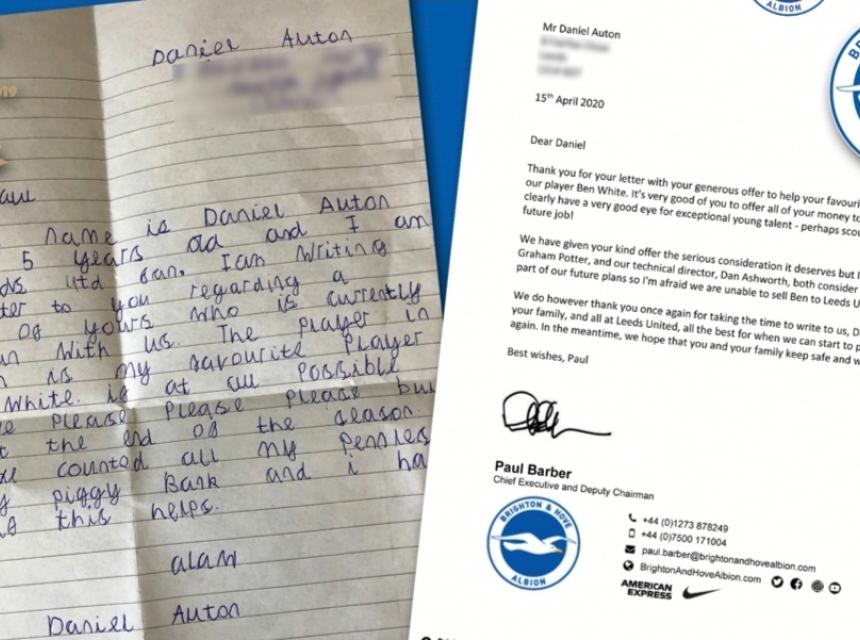 19
Daniel Auton
aul
name is Daniel Auton
5 years old and I am
ds utd fan. I am writing
ter to you regarding a
of yours who is currently
an with us. The player in
n is my favourite player
White. if at all possible
e please please please bu
t the end of the season.
ve counted all my pennies
y piggy Bank and i ha
f this helps.
alaw
Daniel Auton
ALBION
Mr Daniel Auton
15th April 2020
Dear Daniel
Thank you for your letter with your generous offer to help your favouri
our player Ben White. It's very good of you to offer all of your money to
clearly have a very good eye for exceptional young talent - perhaps scou
future job!
We have given your kind offer the serious consideration it deserves but
Graham Potter, and our technical director, Dan Ashworth, both consider
part of our future plans so I'm afraid we are unable to sell Ben to Leeds U
We do however thank you once again for taking the time to write to us, D
your family, and all at Leeds United, all the best for when we can start to p
again. In the meantime, we hope that you and your family keep safe and w
Best wishes, Paul
Paul Barber
Chief Executive and Deputy Chairman
BRIGHTON & HOVE
ALBION
+44 (0)1273 878249
+44 (0)7500 171004
paul.barber@brightonandhovealbion.com
BrightonAndHoveAlbion.com
AMERICAN
EXPRESS